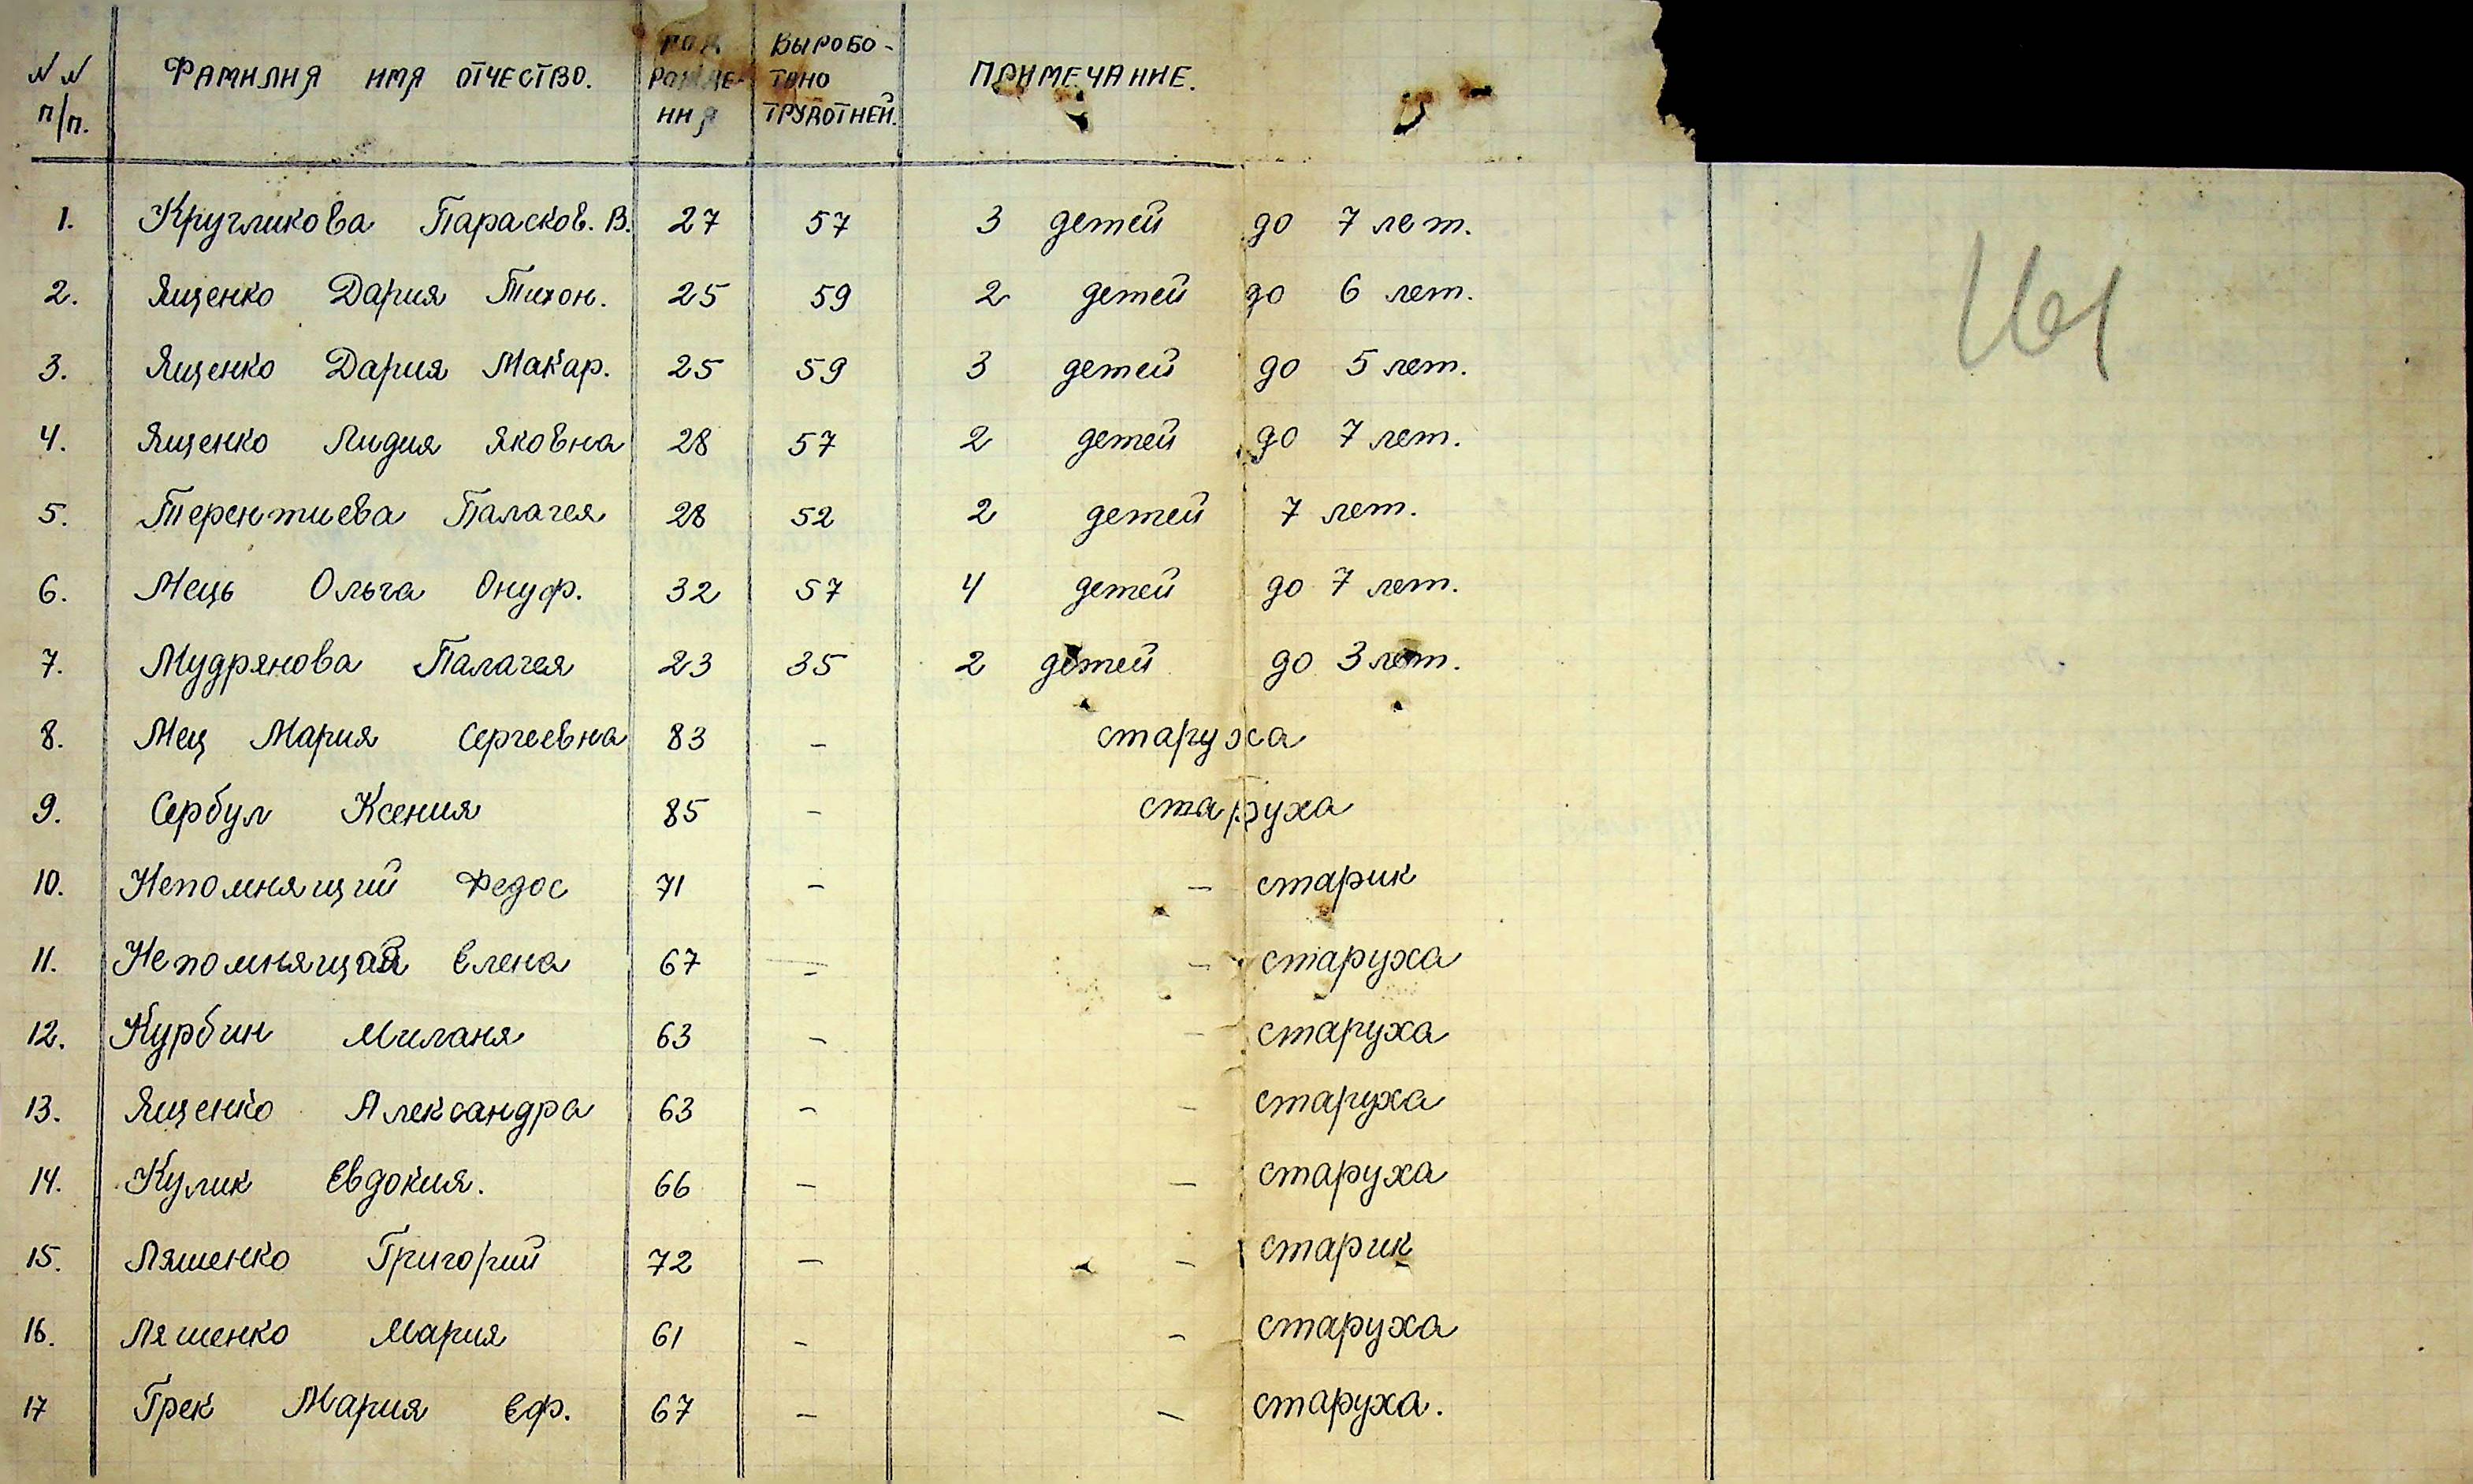 №№ п/п. ФАМИЛИЯ ИМЯ ОТЧЕСТВО. ГОД РОЖДЕ-НИЯ ВЫРОБО-ТАНО ТРУДОТНЕЙ. ПРИМЕЧАНИЕ.
1. Кругликова Парасков. В. 27 57 3 детей до 7 лет.
2. Ященко Дария Тихон. 25 59 2 детей до 6 лет.
3. Ященко Дария Макар. 25 59 3 детей до 5 лет.
4. Ященко Лидия Яковна 28 57 2 детей до 7 лет.
5. Терентиева Палагея 28 52 2 детей 7 лет.
6. Мець Ольга Онуф. 32 57 4 детей до 7 лет.
7. Мудрянова Палагея 23 35 2 детей до 3 лет.
8. Мец Мария Сергеевна 83 - старуха
9. Сербул Ксения 85 - старуха
10. Непомнящий Федос 71 - - старик
11. Непомнящая Елена 67 - - старуха
12. Курбин Миланя 63 - - старуха
13. Ященко Александра 63 - - старуха
14. Кулик Евдокия. 66 - - старуха
15. Ляшенко Григорий 72 - - старик
16. Ляшенко Мария 61 - - старуха
17 Грек Мария Еф. 67 - - старуха.